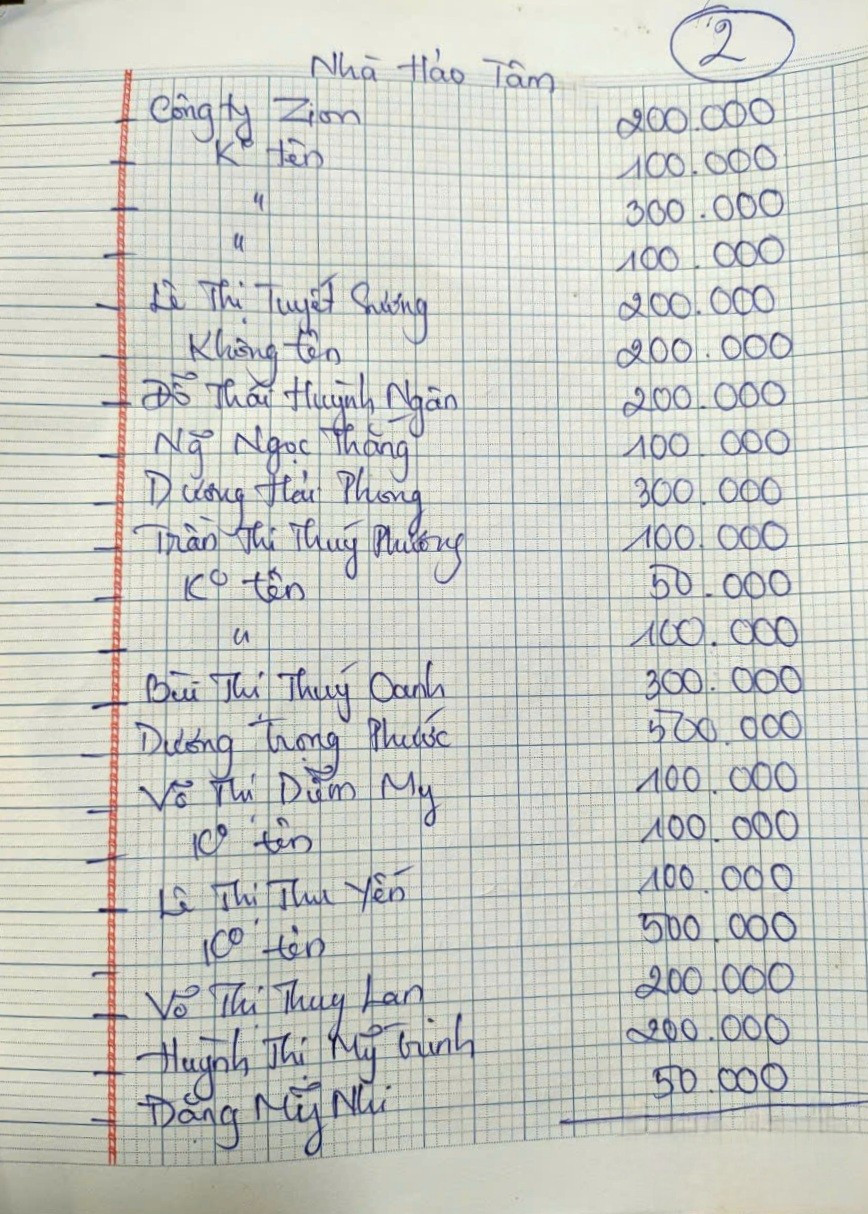 2
Nhà Hảo Tâm
Công ty Zion 200.000
K° tên 100.000
" 300.000
" 100.000
Lê Thị Tuyết Sương 200.000
Không tên 200.000
Đỗ Thái Huỳnh Ngân 200.000
Ng̃ Ngọc Thắng 100.000
Dương Hải Phong 300.000
Trần Thị Thuý Phương 100.000
K° tên 50.000
" 100.000
Bùi Thị Thuý Oanh 300.000
Dương Trọng Phước 500.000
Võ Thị Diễm My 100.000
K° tên 100.000
Lê Thị Thu Yến 100.000
K° tên 500.000
Võ Thị Thuy Lan 200.000
Huỳnh Thị Mỹ Trinh 200.000
Đặng Mỹ Nhi 50.000